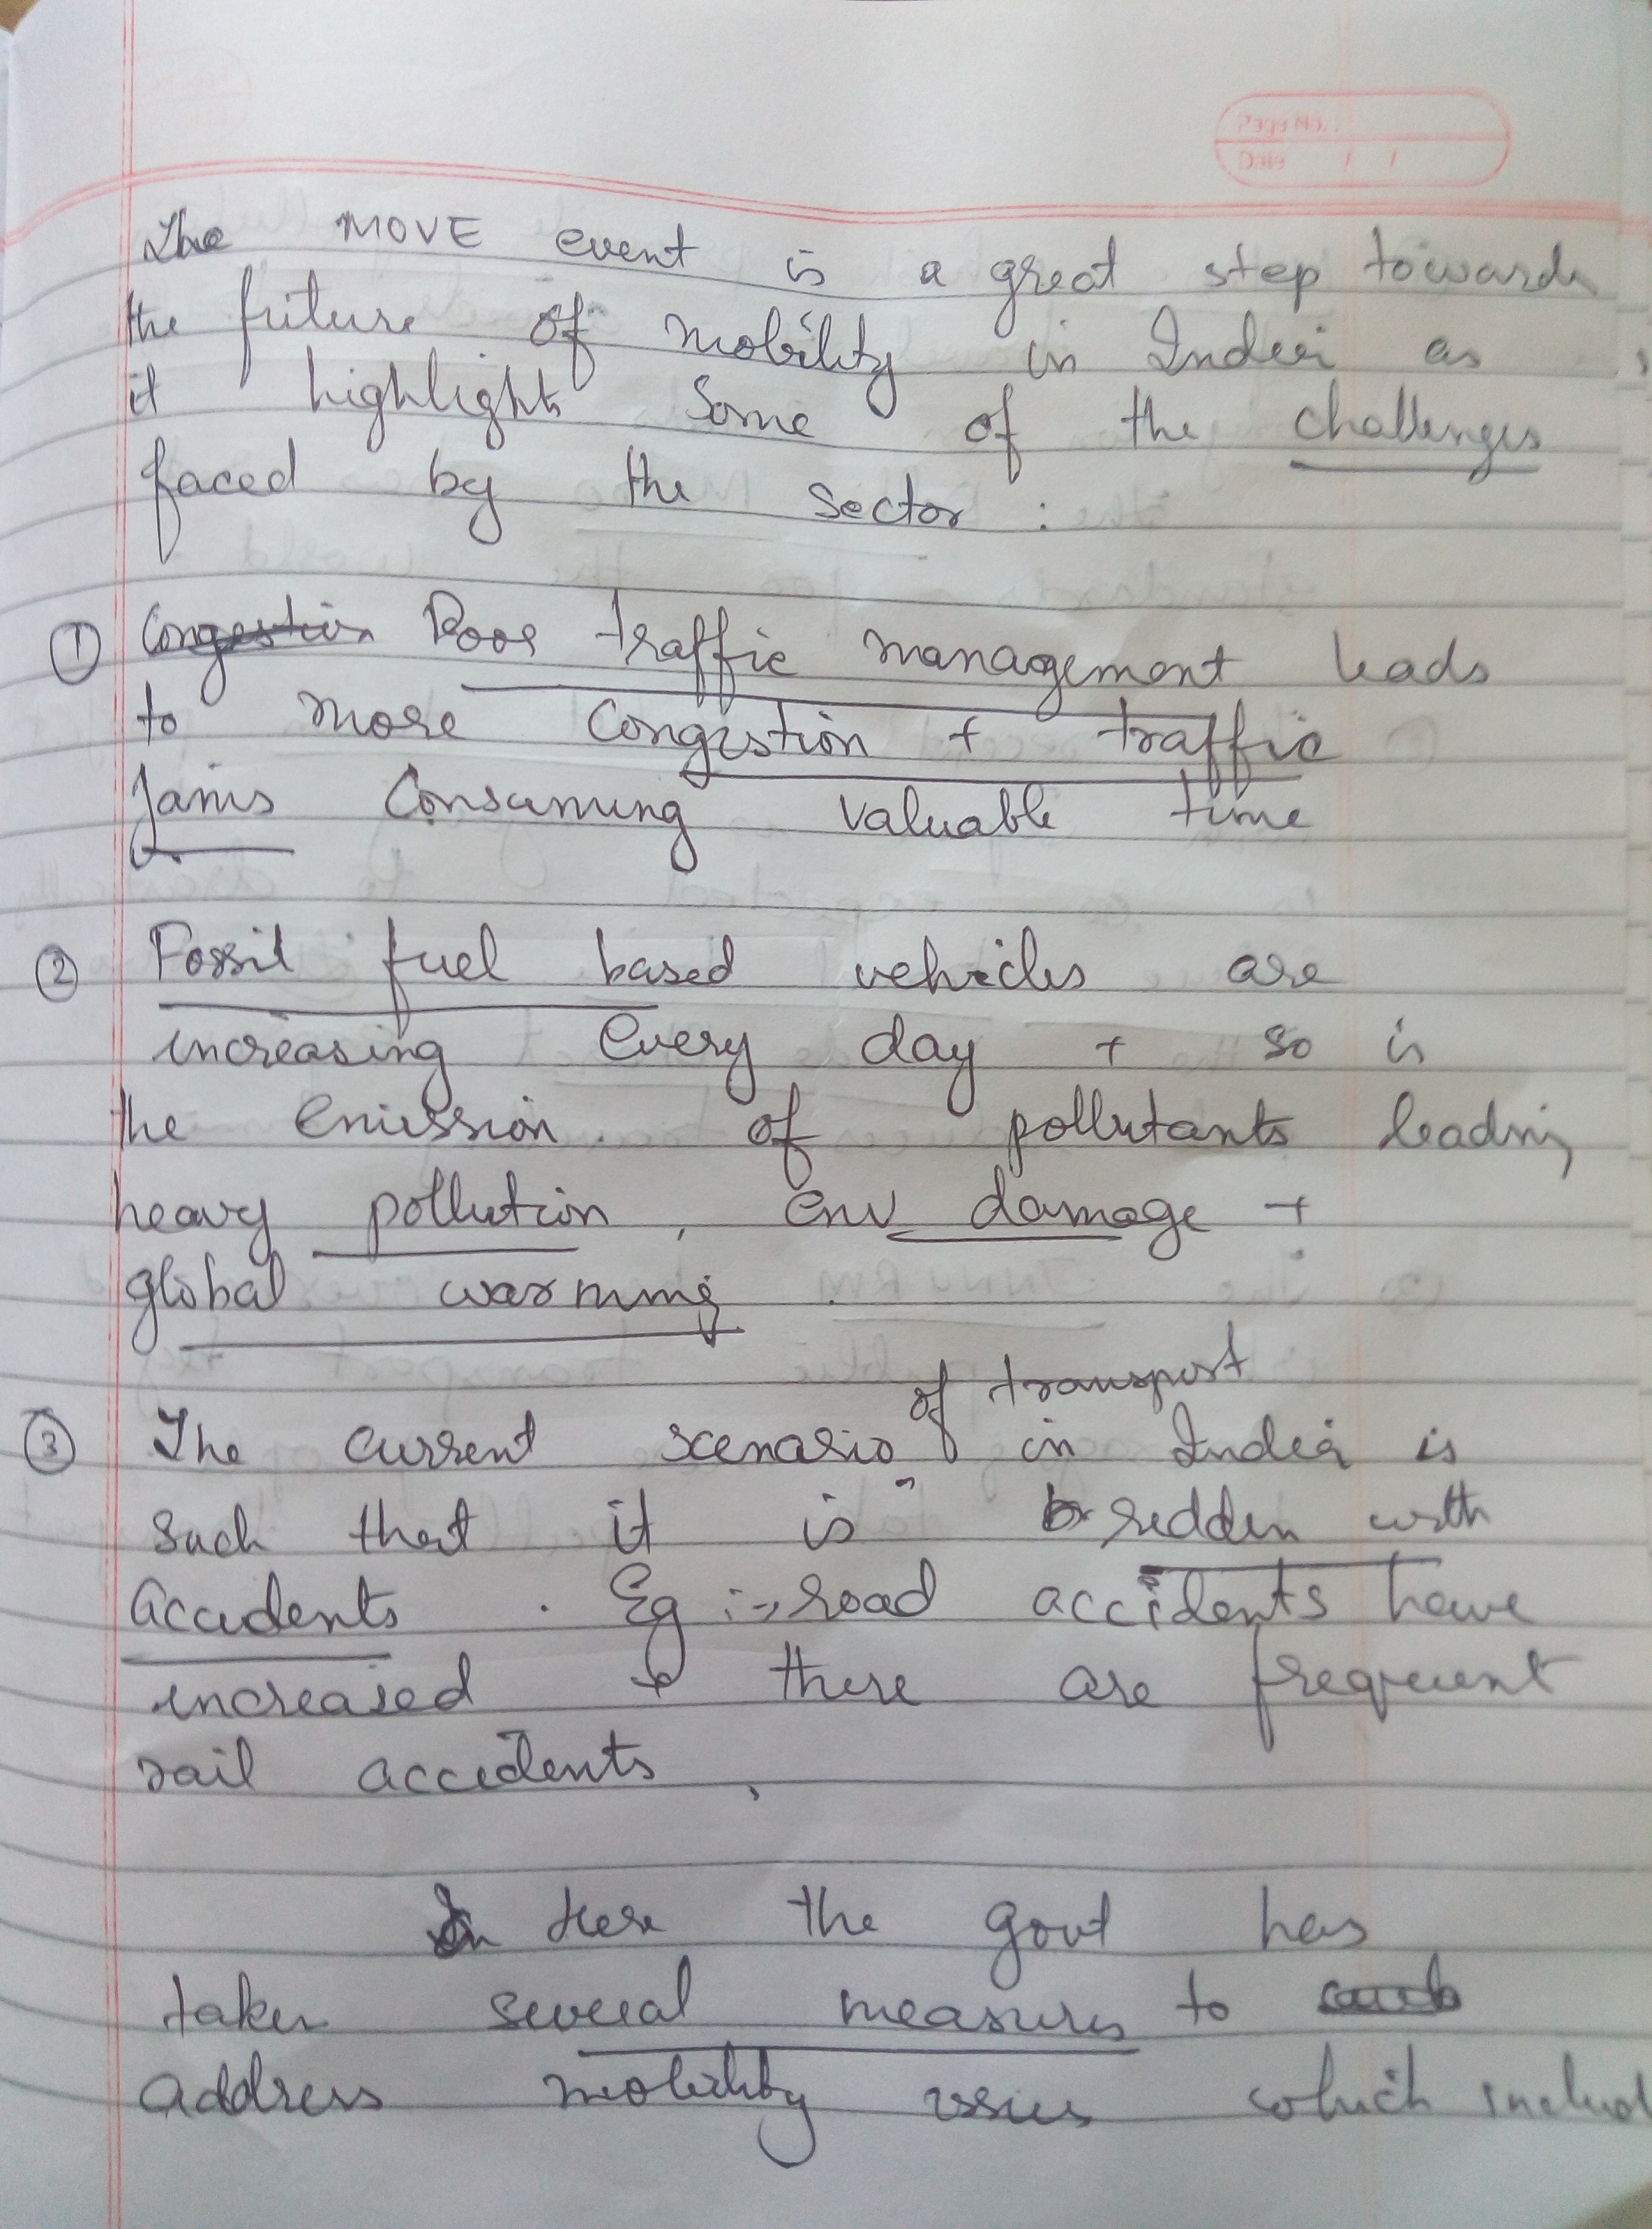 Page No.
Date / /
The MOVE event is a great step towards
the future of mobility in India as
it highlights some of the challenges
faced by the sector :
① Congestion Poor traffic management leads
to more congestion + traffic
Jams consuming valuable time
② Fossil fuel based vehicles are
increasing every day + so is
the emission of pollutants leading
heavy pollution, env damage +
global warming
of transport
③ The current scenario in India is
such that it is ridden with
accidents. Eg :-> road accidents have
increased & there are frequent
rail accidents.
In Here the govt has
taken several measures to
address mobility issues which includ